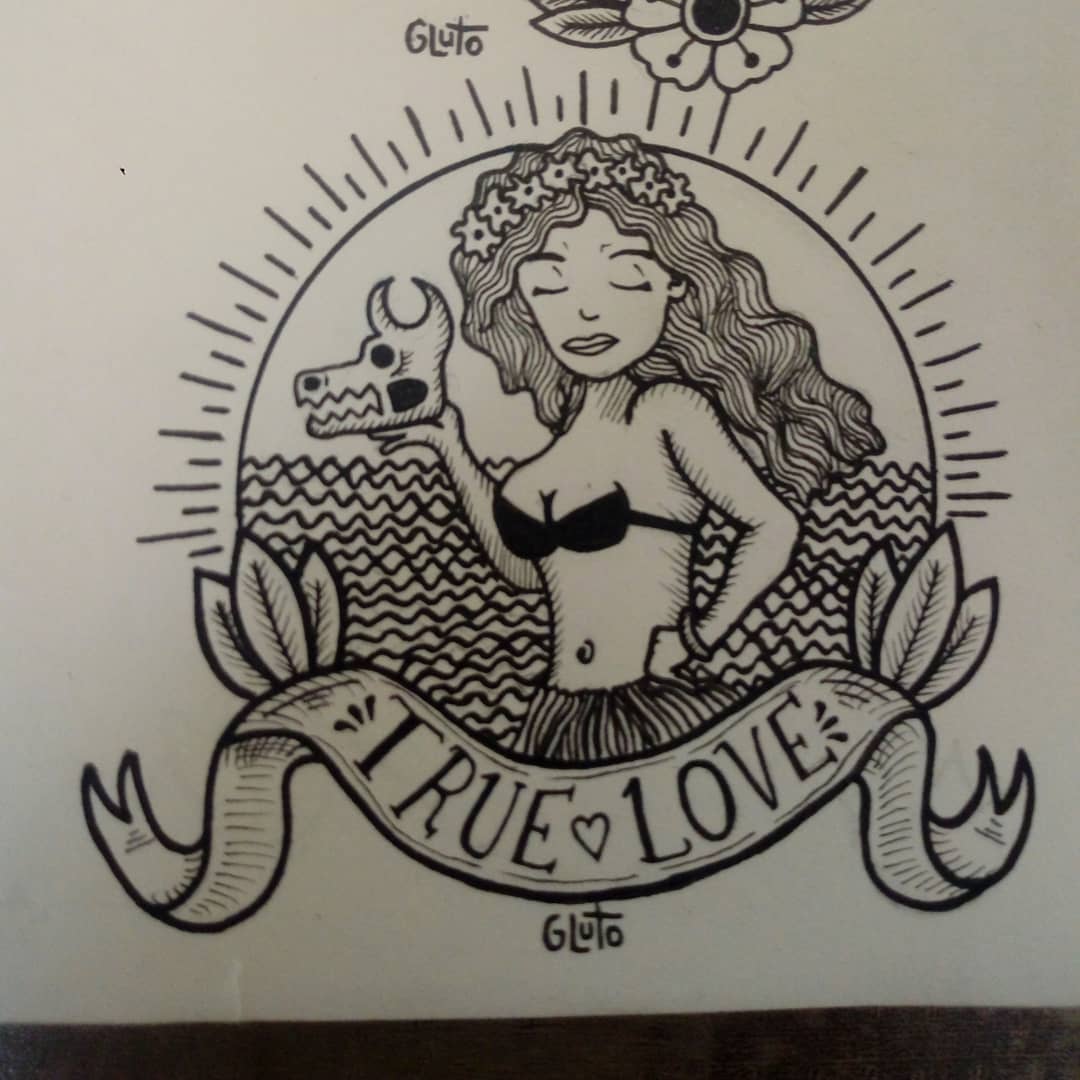 GLuto
TRUE ♡ LOVE
GLuto